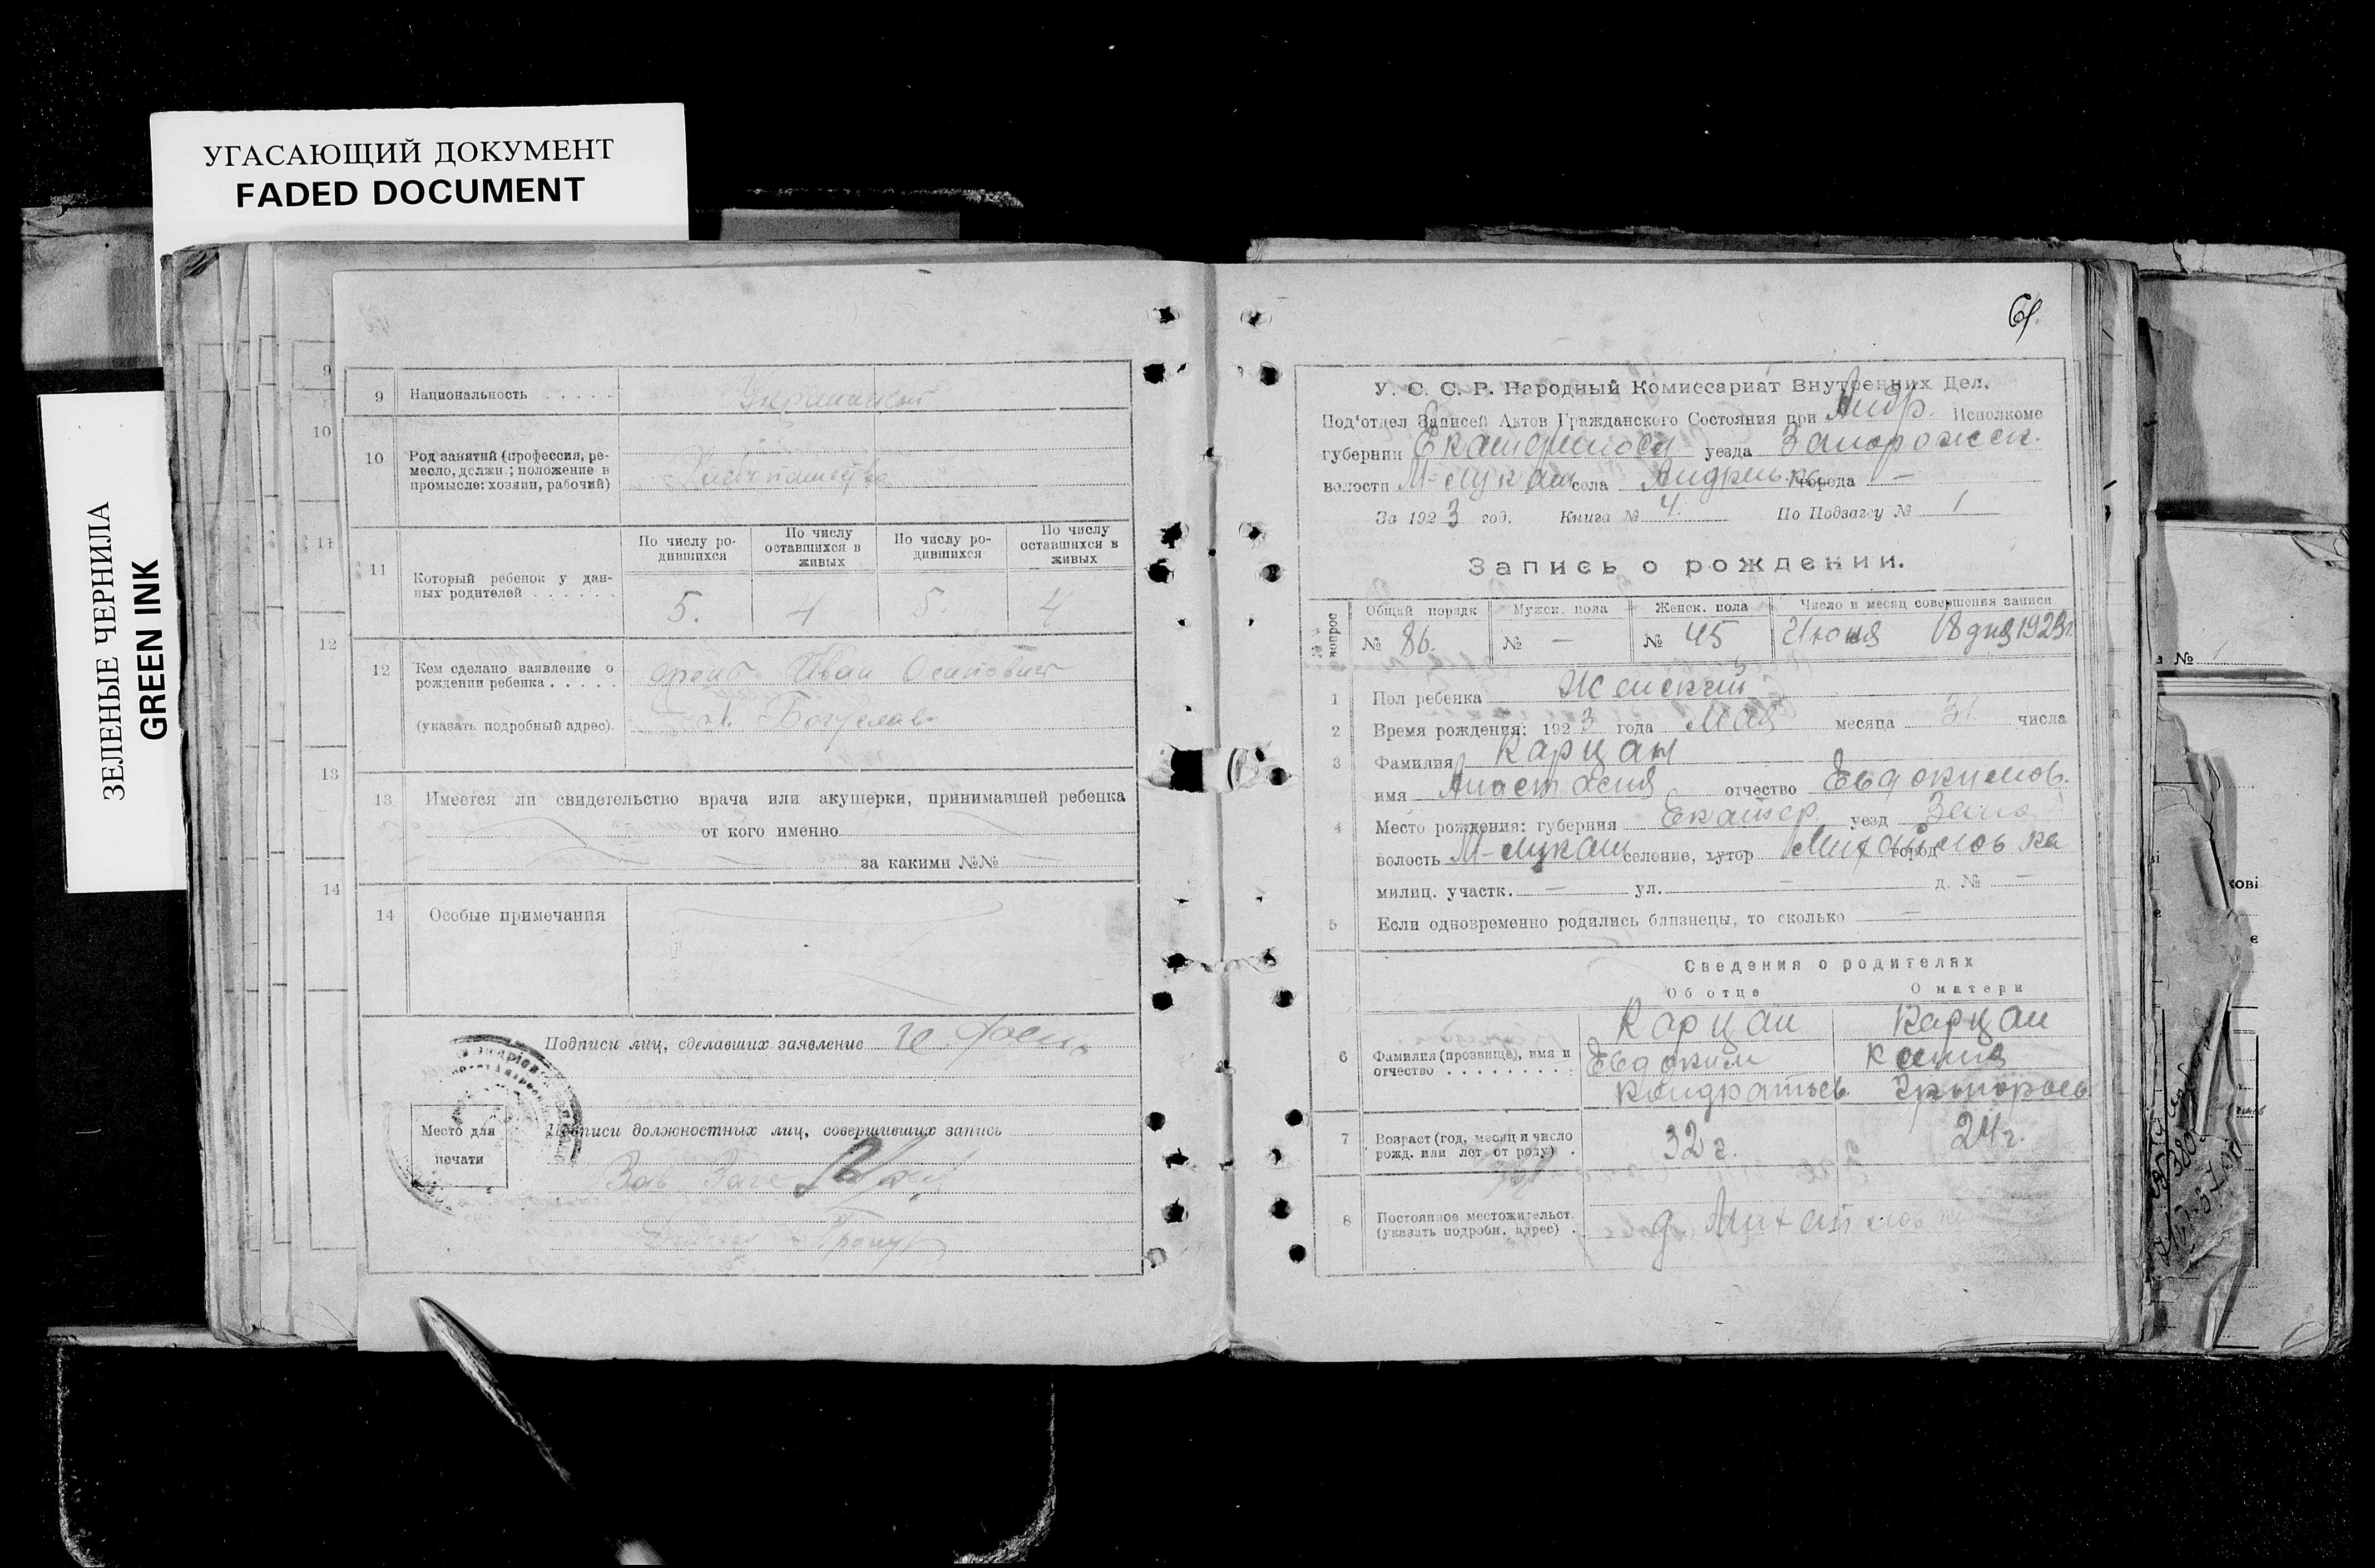 УГАСАЮЩИЙ ДОКУМЕНТ
FADED DOCUMENT
ЗЕЛЕНЫЕ ЧЕРНИЛА
GREEN INK
9
10
11
12
13
14
9 Национальность . . . . .
10 Род занятий (профессия, ре-
месло, должн.; положение в
промысле: хозяин, рабочий)
Хлебопашество
11 Который ребенок у дан-
ных родителей . . . . . .
По числу ро-
дившихся
По числу
оставшихся в
живых
По числу ро-
дившихся
По числу
оставшихся в
живых
5. 4 5. 4
12 Кем сделано заявление о
рождении ребенка . . . . .
Иван Осипович
(указать подробный адрес).
Богуслав
13 Имеется ли свидетельство врача или акушерки, принимавшей ребенка
от кого именно
за какими №№ —
14 Особые примечания
Подписи лиц, сделавших заявление
Место для
печати
Подписи должностных лиц, совершивших запись
Зав Загс
61
У. С. С. Р. Народный Комиссариат Внутренних Дел.
Под'отдел Записей Актов Гражданского Состояния при Андр. Исполкоме
губернии Екатериносл уезда Запорожск.
волости М-Лукаш села Андреевка города —
За 1923 год. Книга № 4. По Подзагсу № 1
Запись о рождении.
№№ вопрос
Общий порядк Мужск. пола Женск. пола Число и месяц совершения записи
№ 86. № — № 45 Июня 18 дня 1923г.
1 Пол ребенка Женский
2 Время рождения: 1923 года Мая месяца 31 числа
3 Фамилия Карцан
имя Анастасия отчество Евдокимов.
4 Место рождения: губерния Екатер. уезд Запо
волость М-Лукаш селение, хутор Михайловка город
милиц. участк. — ул. — д. № —
5 Если одновременно родились близнецы, то сколько —
Сведения о родителях
Об отце О матери
6 Фамилия (прозвище), имя и
отчество . . . . . . . . .
Карцан Карцан
Евдоким Ксения
Кондратьев. Григорьев.
7 Возраст (год, месяц и число
рожд. или лет от роду) .
32 г. 24 г.
8 Постоянное местожительст.
(указать подробн. адрес) .
д. Михайловка
№ 1
кові